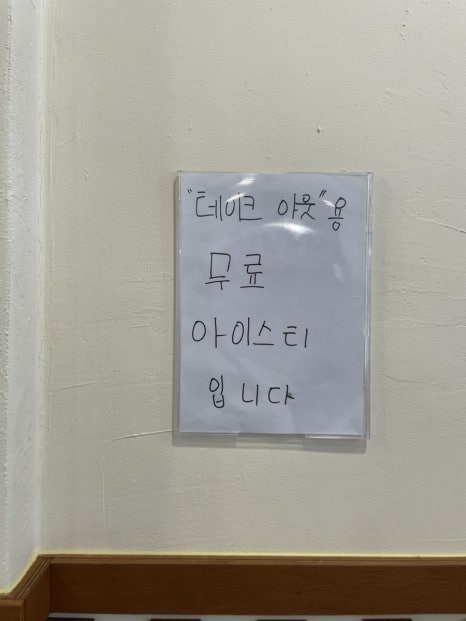 "테이크 아웃"용
무료
아이스티
입니다